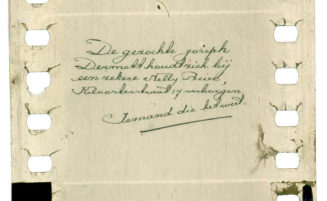 De gezochte joseph
Dermolt houdt zich bij
een zekere Nelly Beier,
Kloosterstraat 17 verborgen
Iemand die het weet.